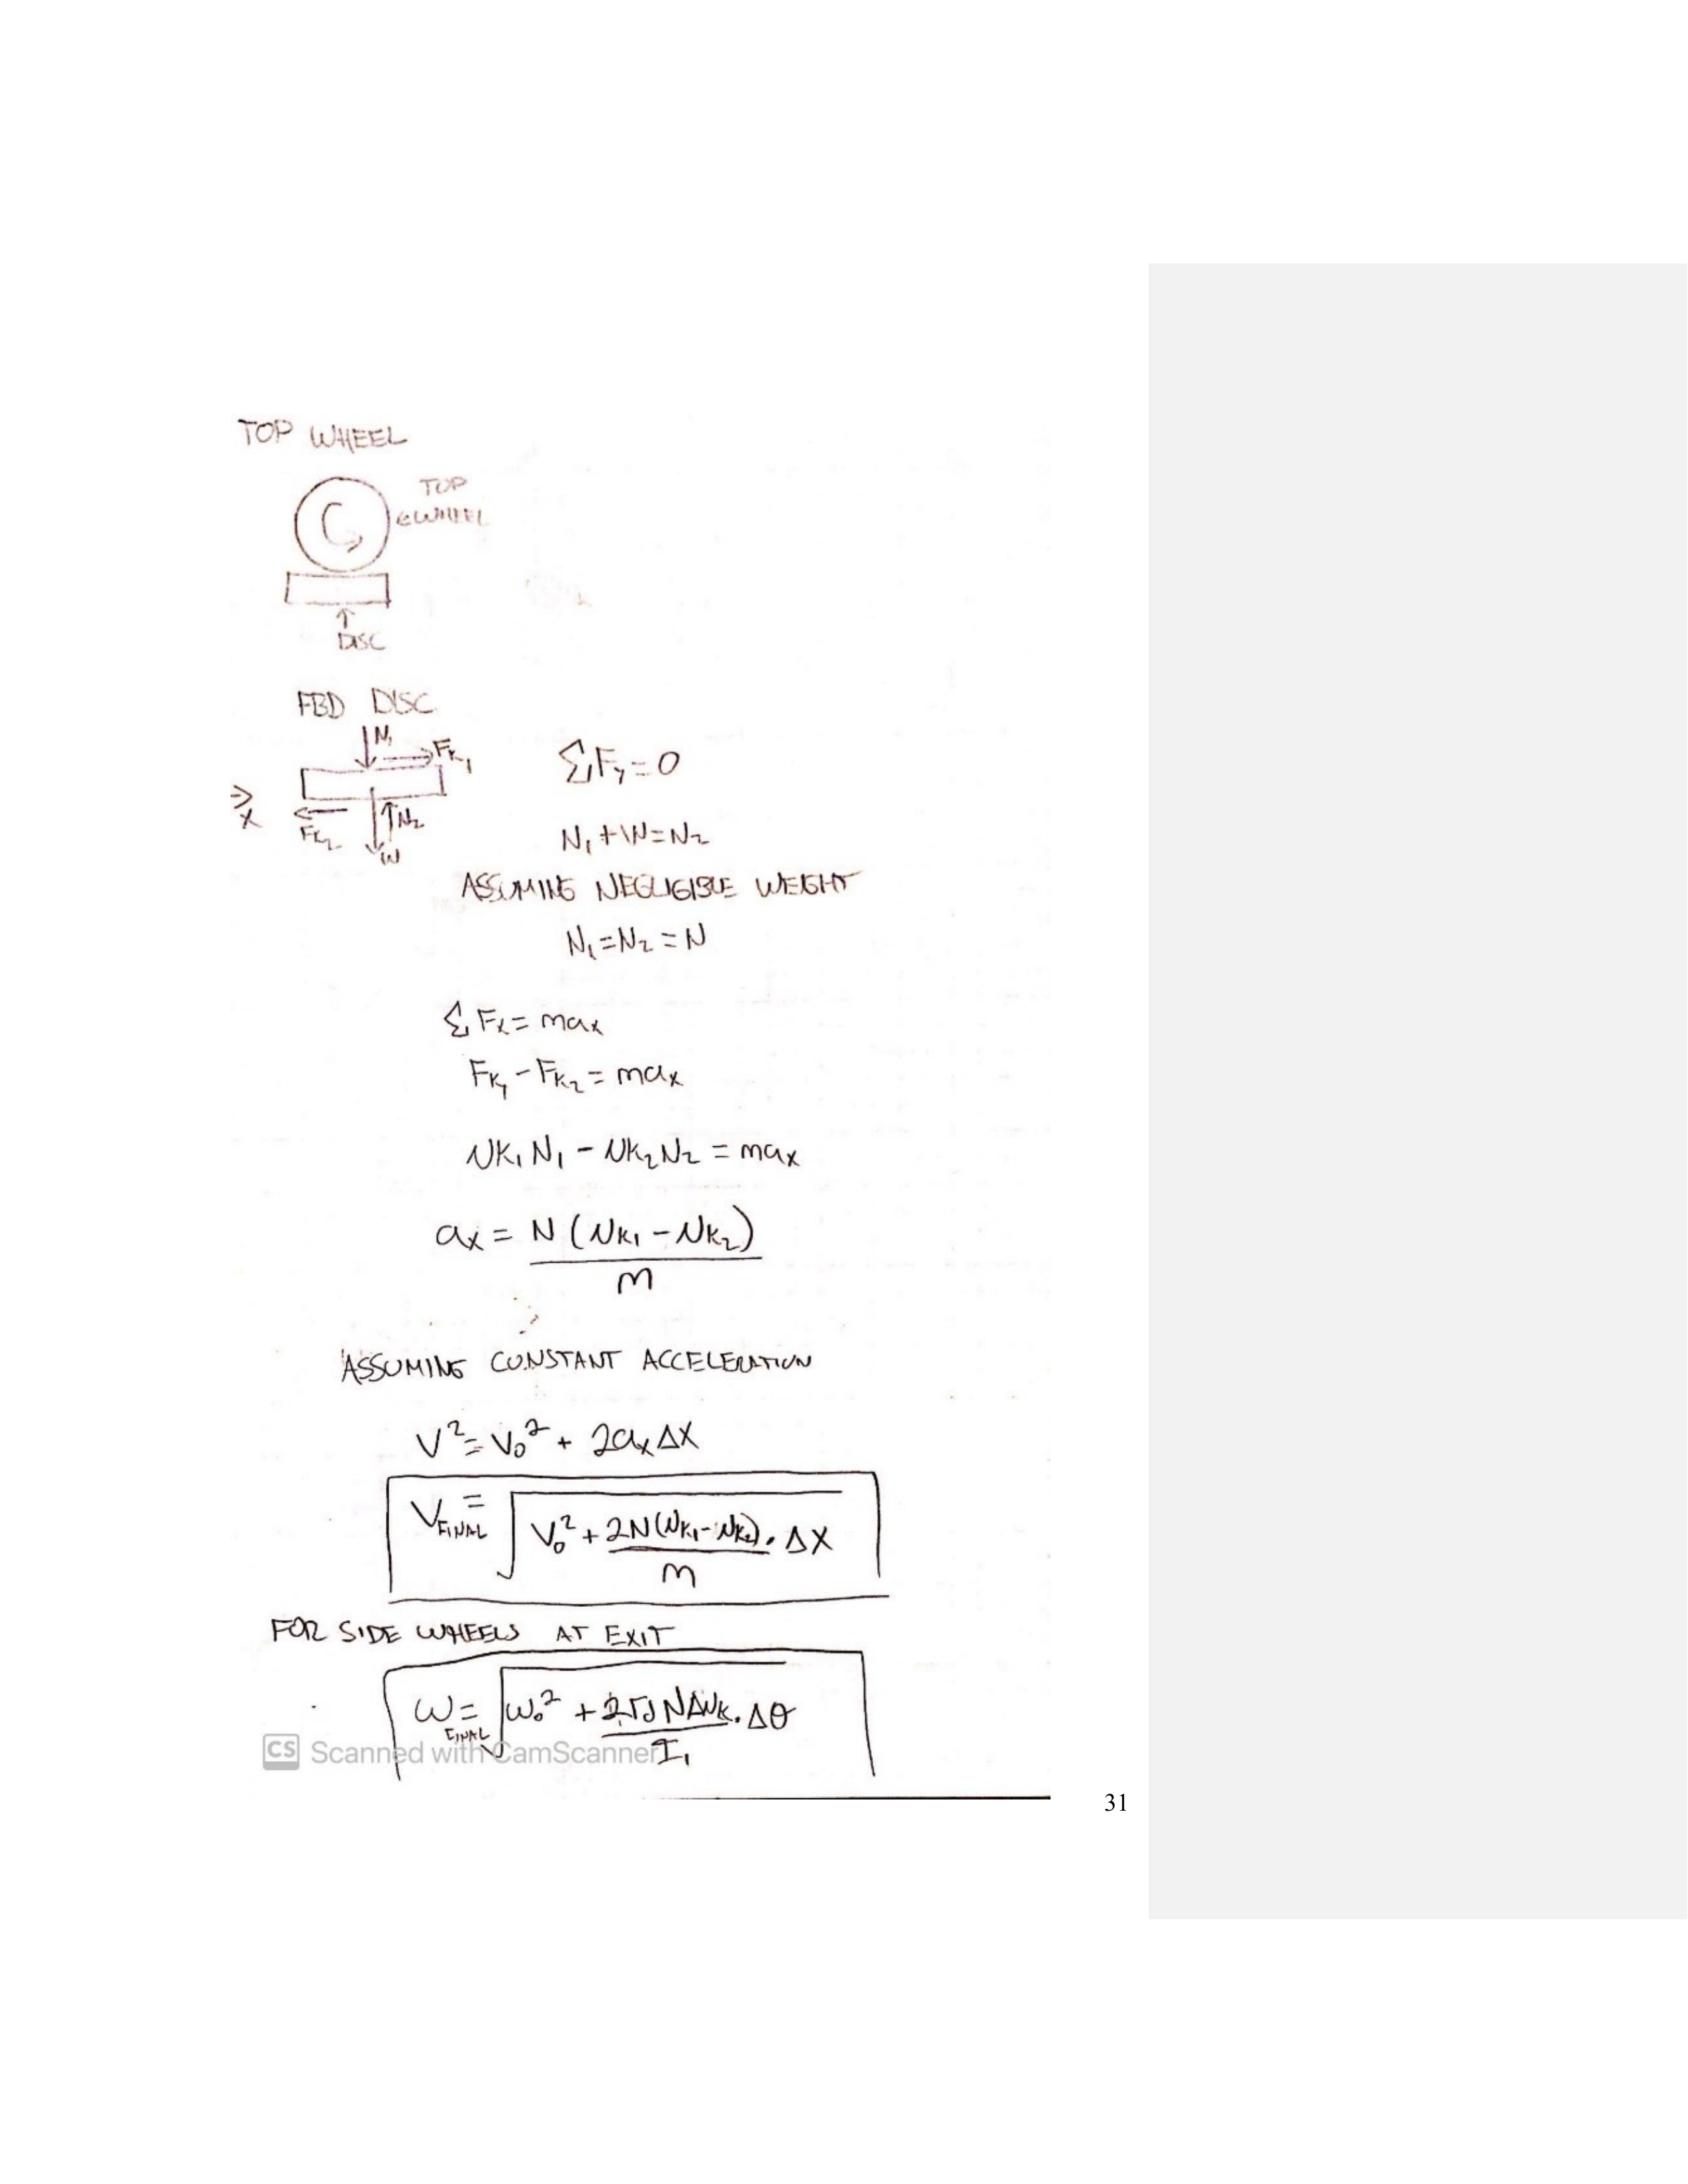 TOP WHEEL
TOP
←WHEEL
↑
DISC
FBD DISC
N₁
Fₖ₁
ΣFy=0
x
Fₖ₂
N₂
W
N₁+W=N₂
ASSUMING NEGLIGIBLE WEIGHT
N₁=N₂=N
ΣFx=max
Fₖ₁-Fₖ₂=max
μk₁N₁-μk₂N₂=max
ax=N(μk₁-μk₂)
m
ASSUMING CONSTANT ACCELERATION
V²=V₀²+2axΔX
V FINAL = √V₀²+2N(μk₁-μk₂)·ΔX
m
FOR SIDE WHEELS AT EXIT
ω FINAL = √ω₀²+2rd NΔμk·Δθ
I₁
CS Scanned with CamScanner
31